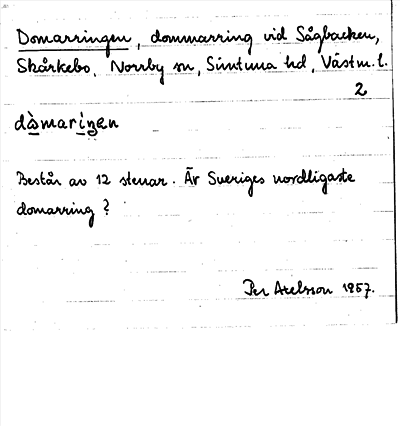 Domarringen, dommarring vid Sågbacken,
Skårkebo, Norrby sn, Simtuna hd, Västm. l.
2
dòmariŋen
Består av 12 stenar. Är Sveriges nordligaste
domarring?
Per Axelsson 1957.